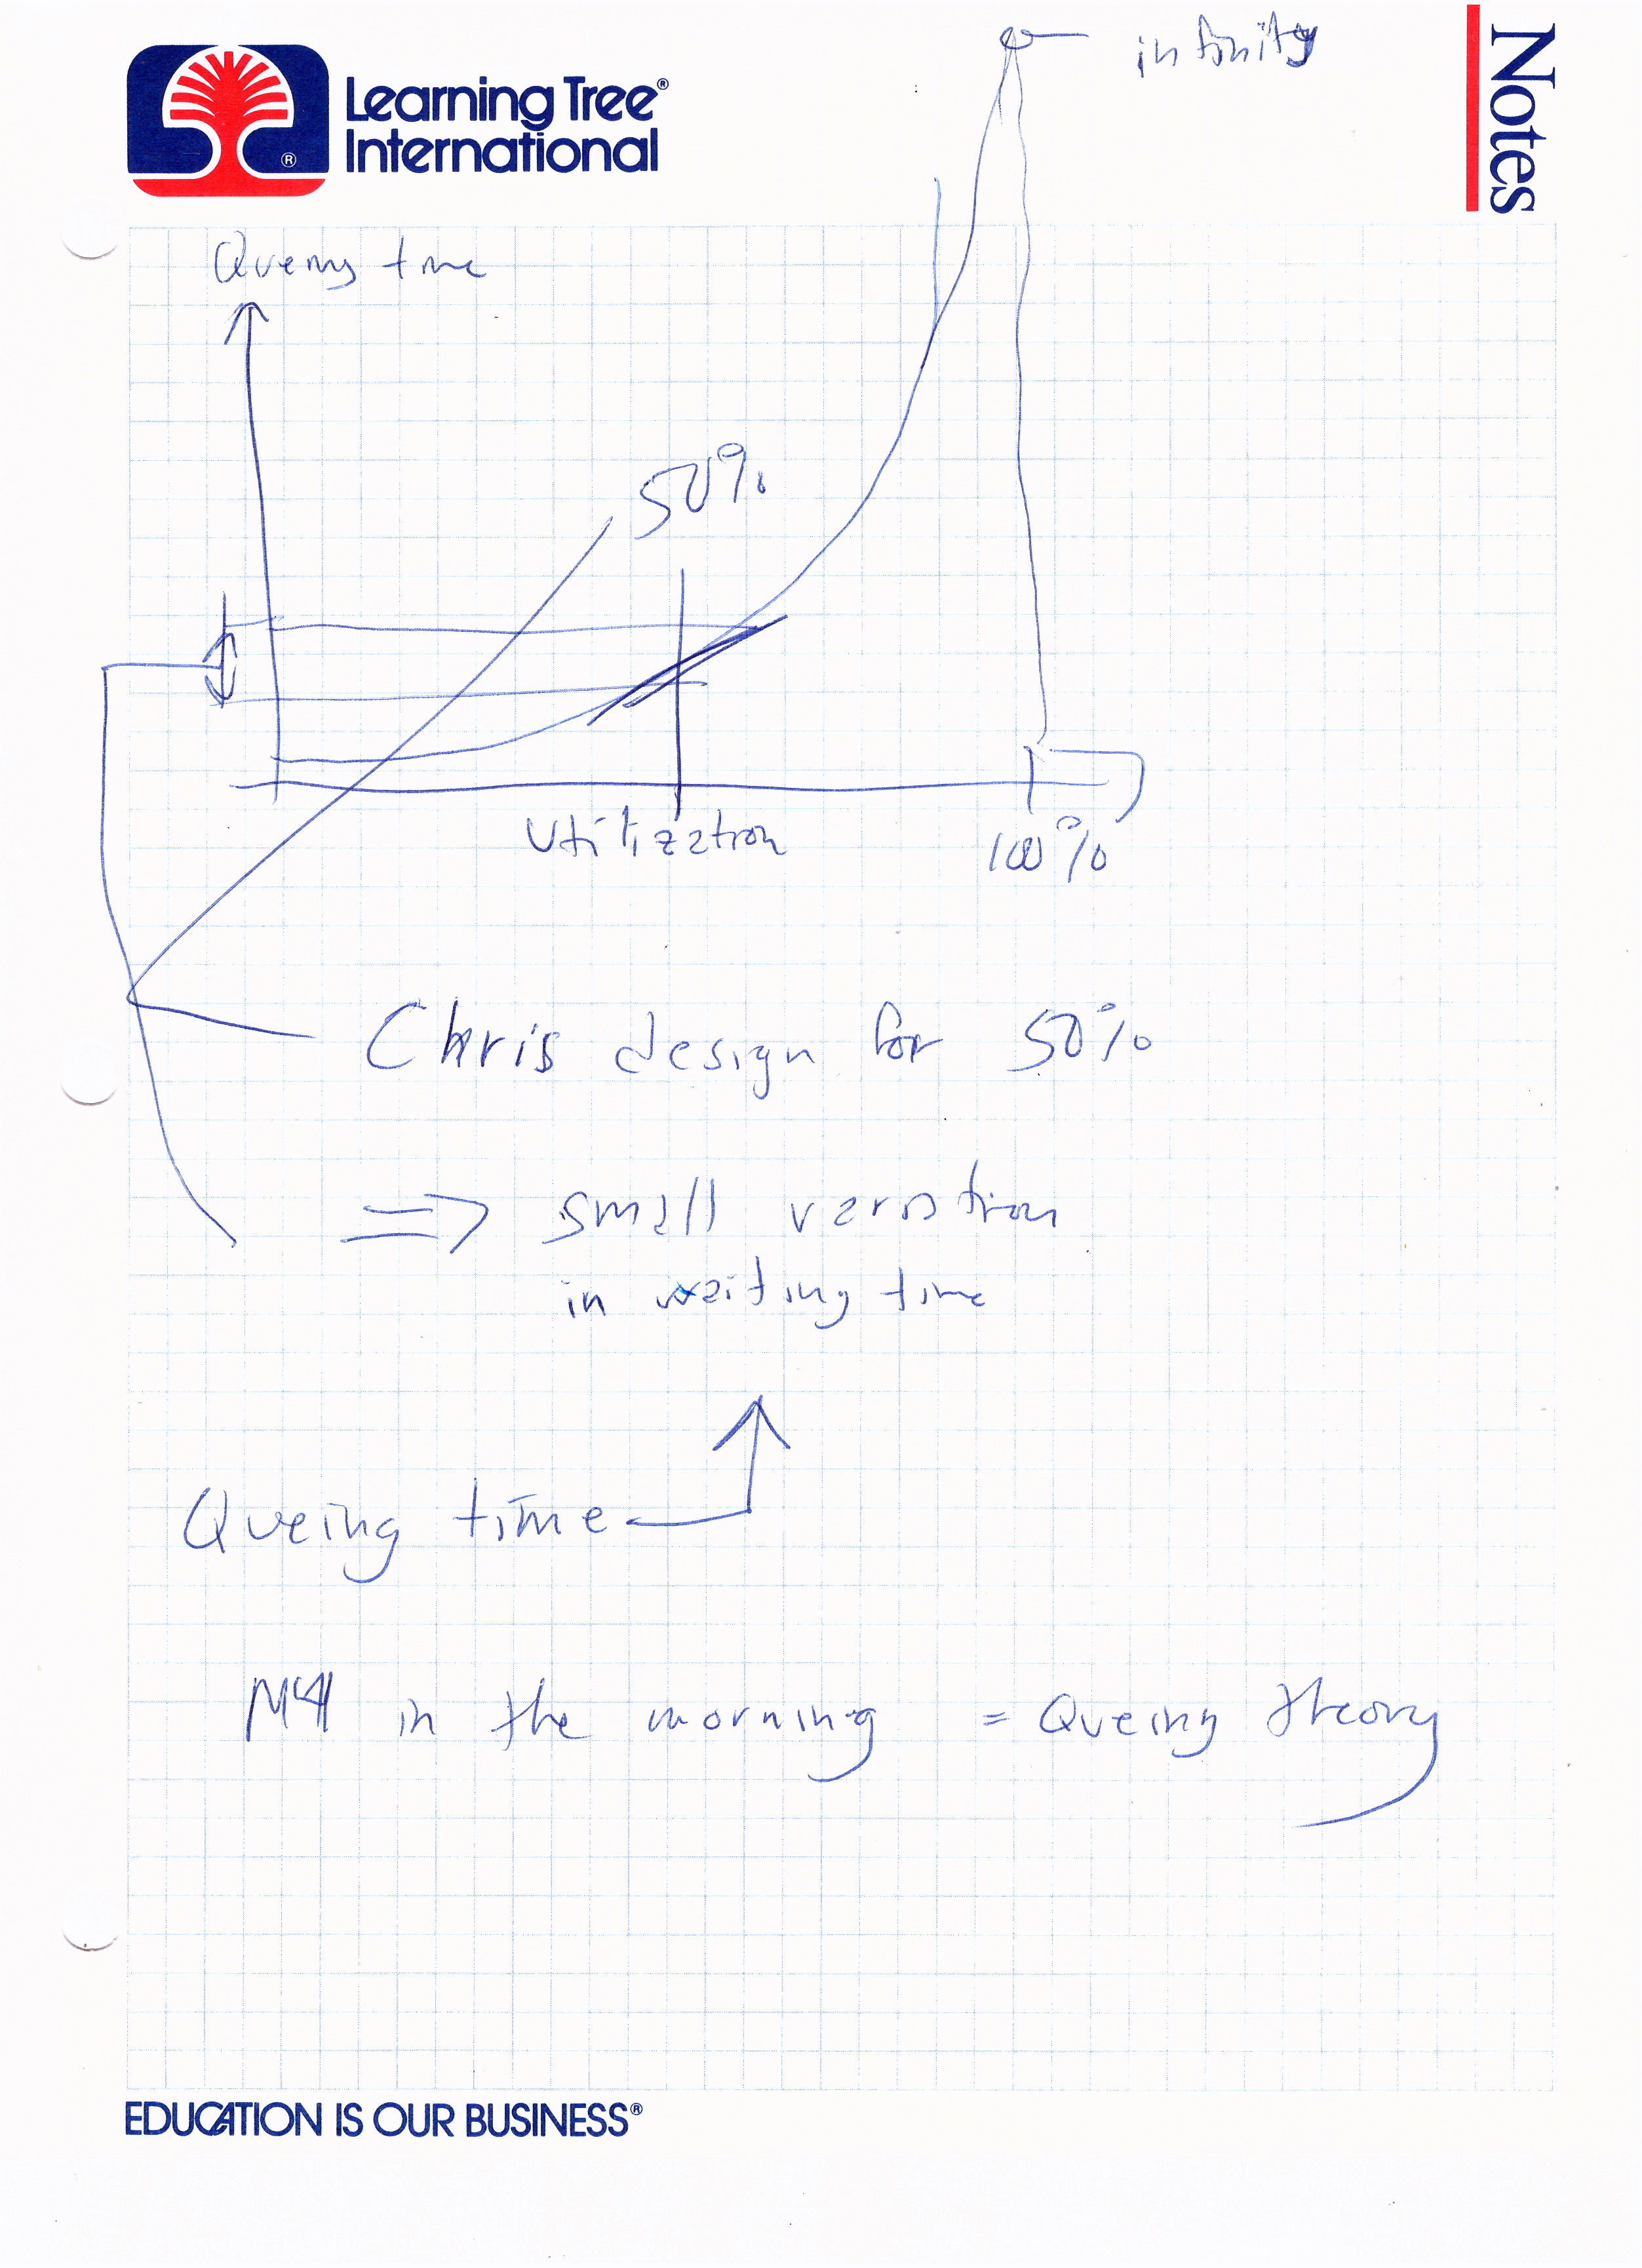 Learning Tree®
International
®
Notes
infinity
Queing time
50%
Utilization
100%
Chris design for 50%
=> small variation
in waiting time
Queing time
in the morning = Queing theory
EDUCATION IS OUR BUSINESS®